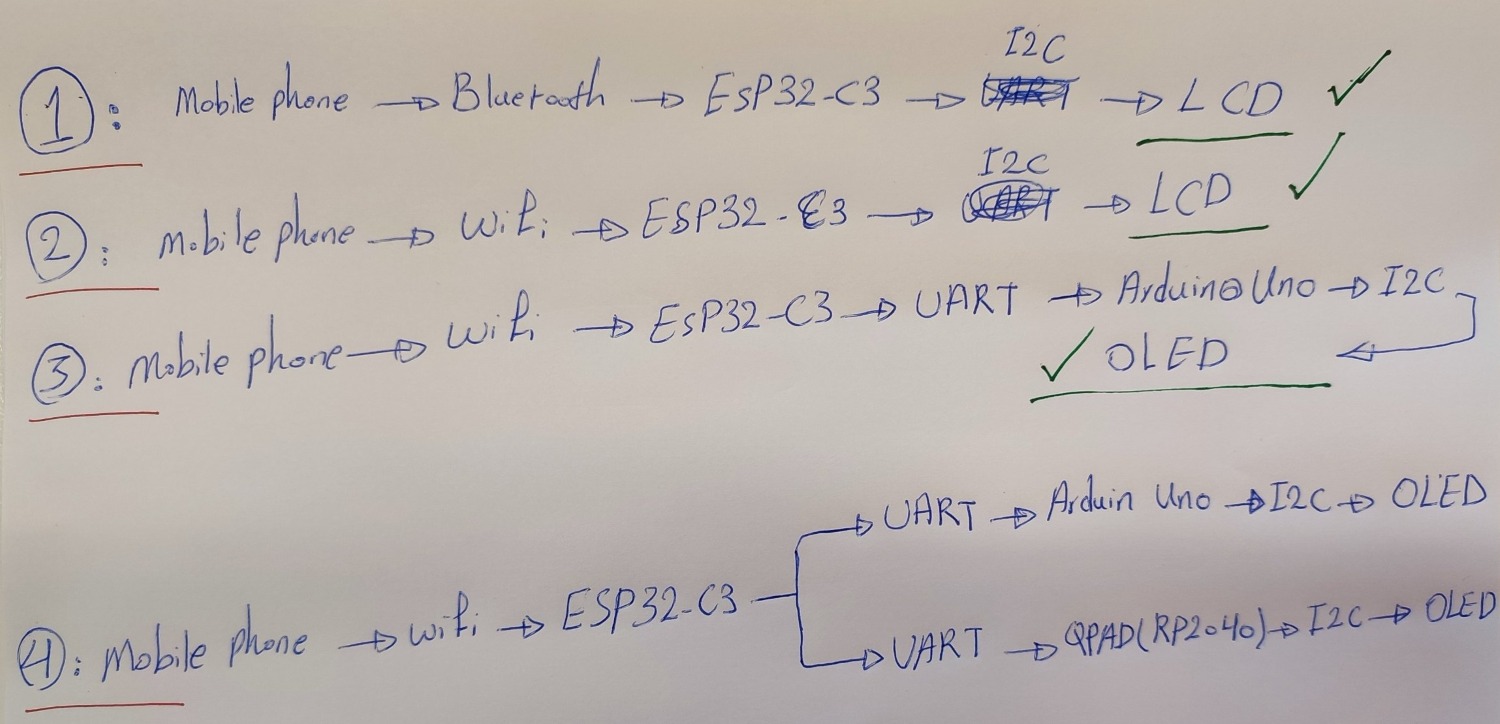 1: Mobile phone → Bluetooth → ESP32-C3 → I2C → LCD ✓
2: Mobile phone → Wifi → ESP32-C3 → I2C → LCD ✓
3: Mobile phone → Wifi → ESP32-C3 → UART → Arduino Uno → I2C
✓ OLED
UART → Arduin Uno → I2C → OLED
4: Mobile phone → Wifi → ESP32-C3
UART → QPAD(RP2040) → I2C → OLED